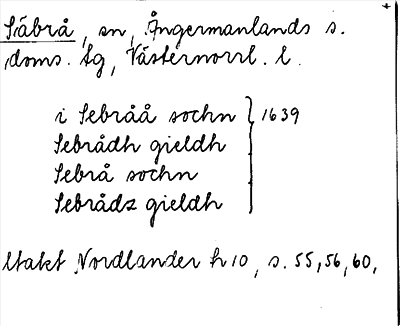 Säbrå, sn, Ångermanlands s.
doms. Sg, Västernorrl. l.
i Sebråå sochn } 1639
Sebrådh gieldh
Sebrå sochn
Sebrådz gieldh
Utakt Nordlander h 10, s. 55, 56, 60,